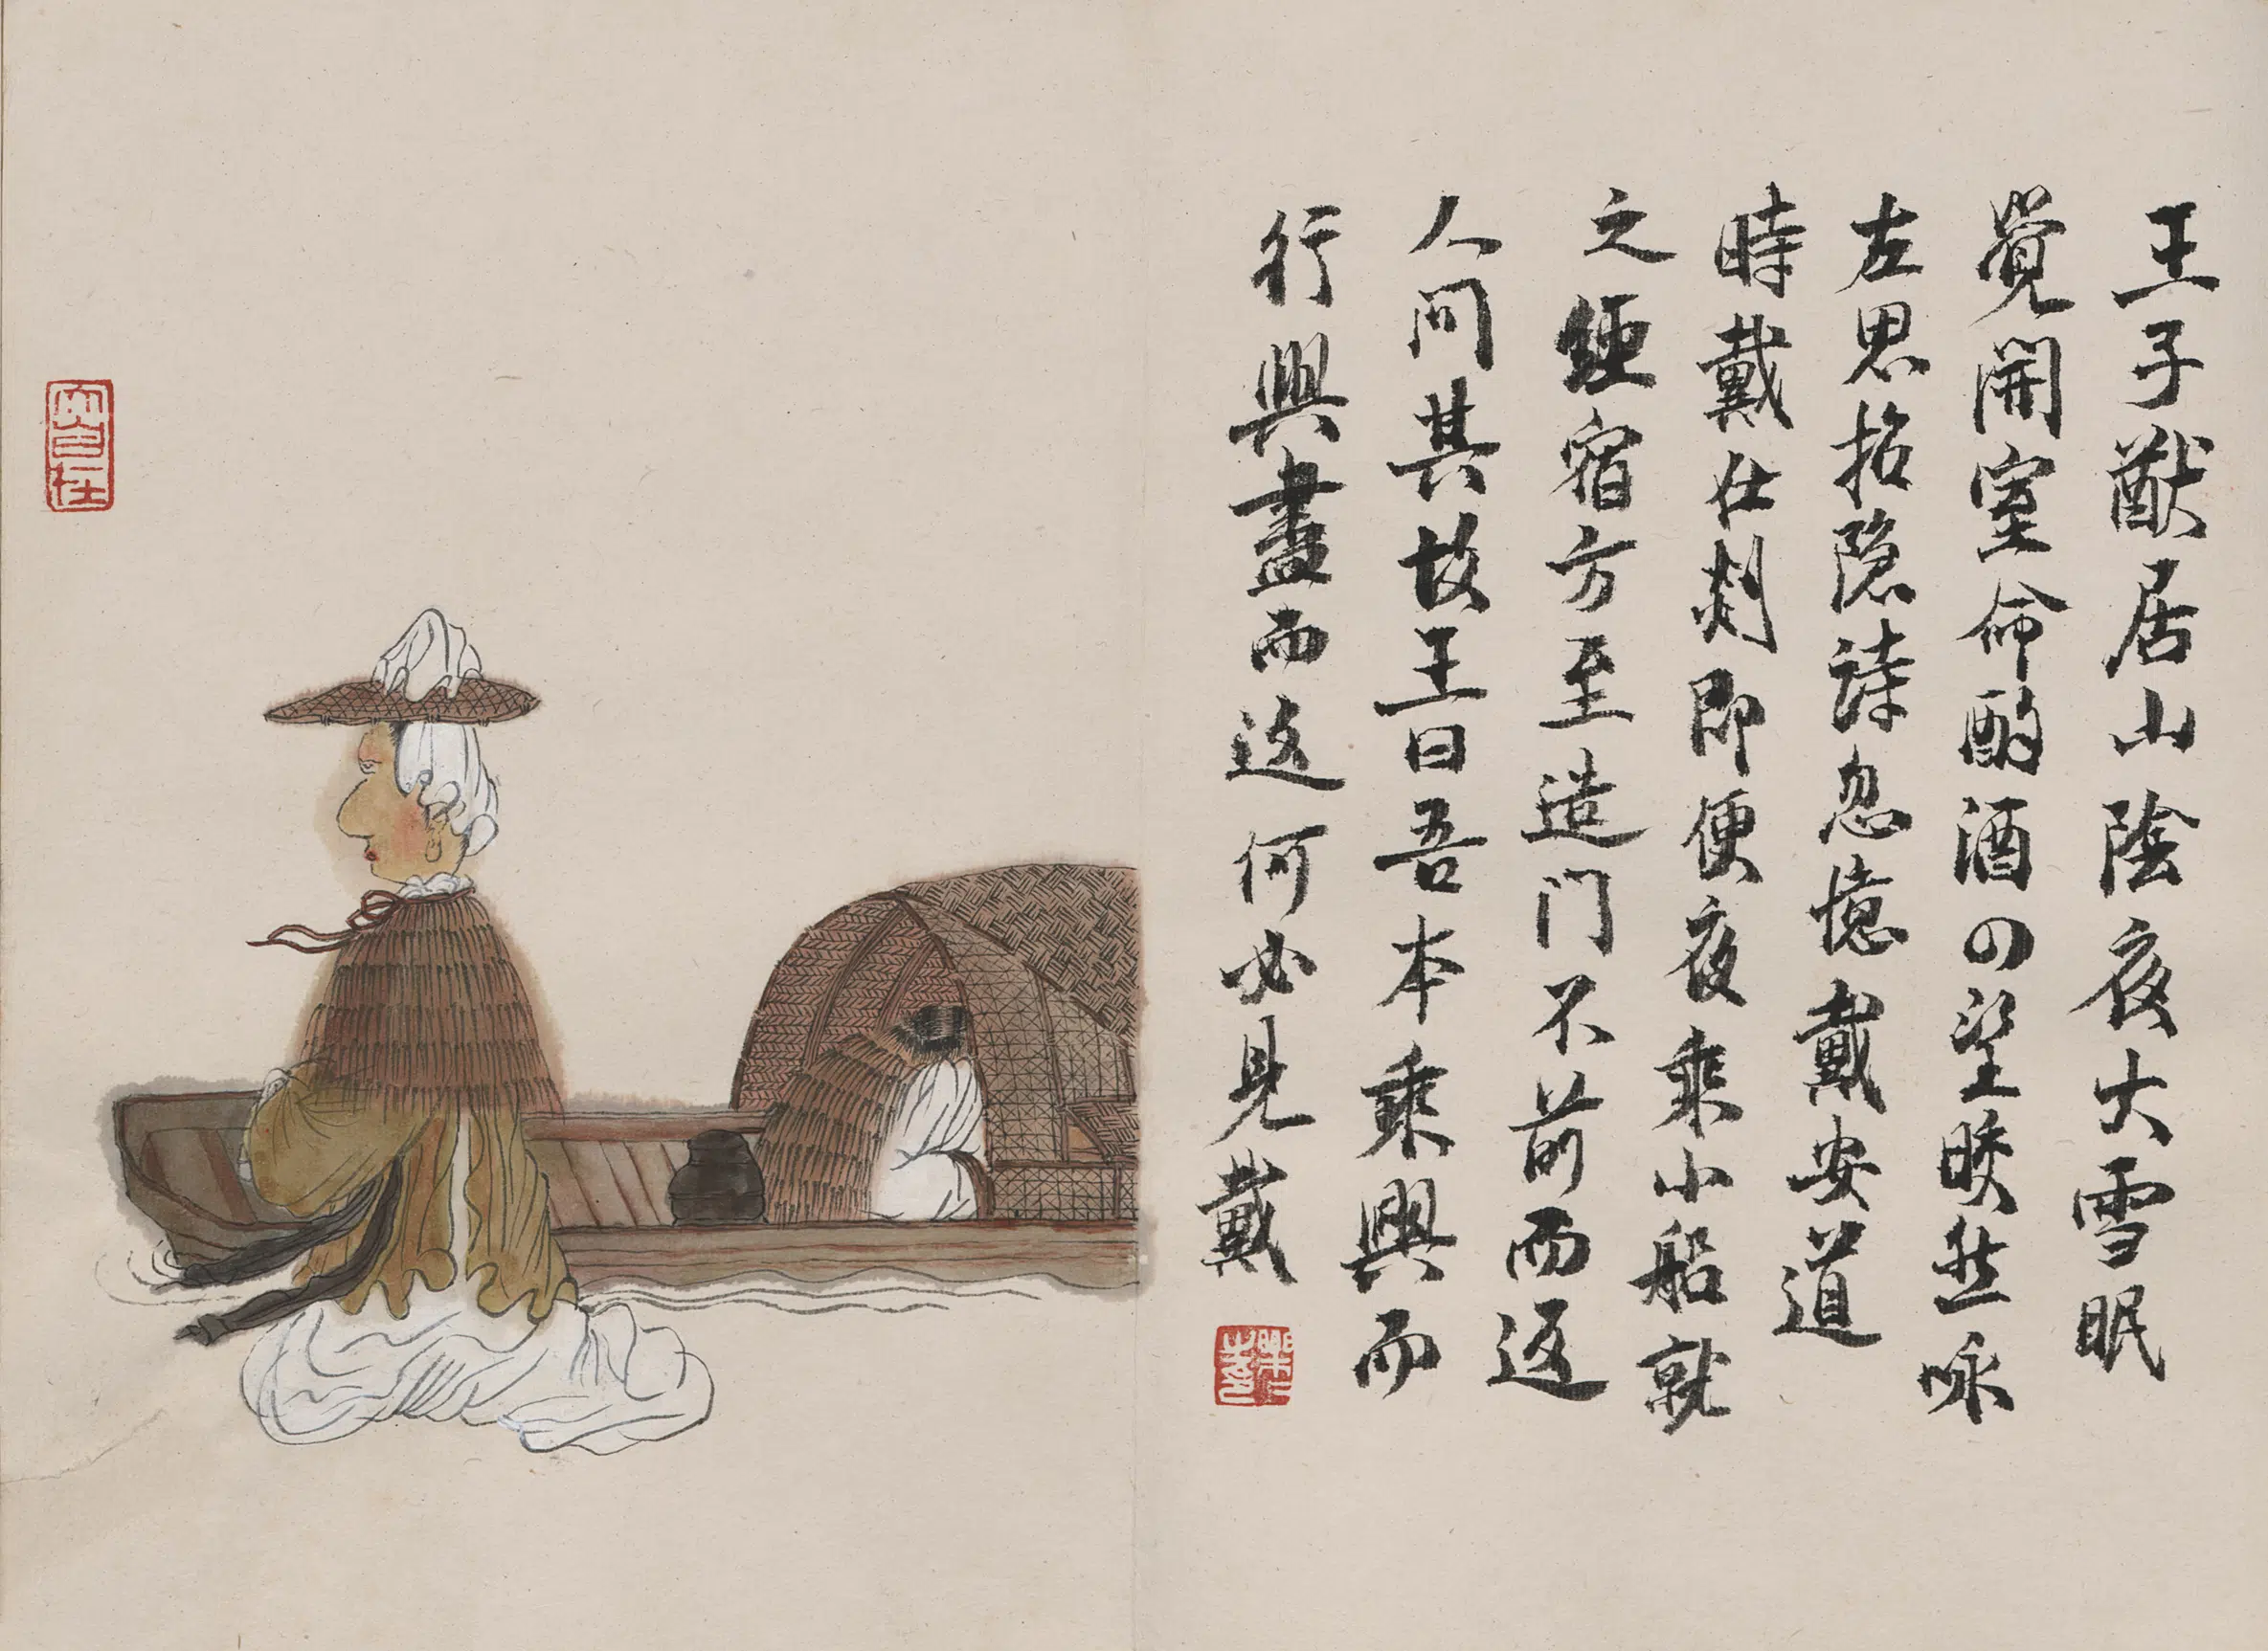 王子猷居山陰夜大雪眠
覺開室命酌酒四望皎然咏
左思招隐詩忽憶戴安道
時戴仕剡即便夜乘小船就
之經宿方至造门不前而返
人问其故王曰吾本乘興而
行興盡而返何必見戴